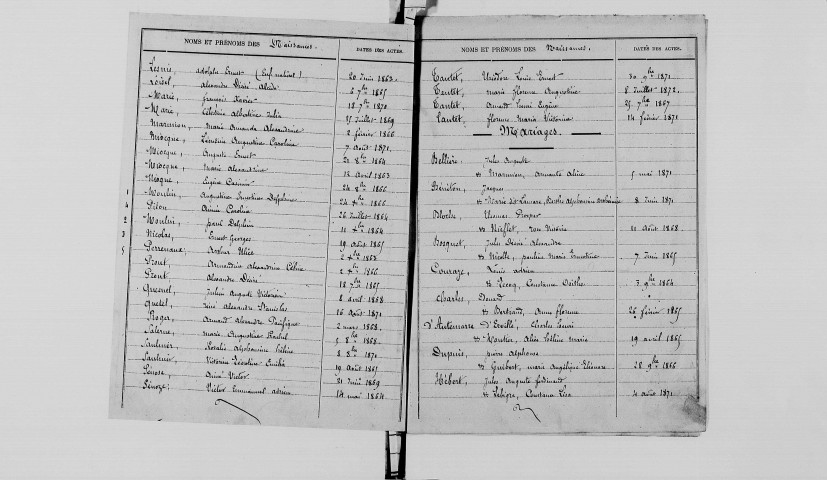 NOMS ET PRÉNOMS DES Naissances. DATES DES ACTES.
Lesnis adolphe Ernest (Enf naturel) 20 Juin 1863.
Loisel, Alexandre Désiré 6 7bre 1865
Marie, françois Xavier 18 7bre 1870
Marie, Célestine Albertine Julia 25 Juillet 1869
Marmion, Marie Armande Alexandrine 2 février 1866
Miocque, Léontine Augustine Caroline 7 Août 1871
Miocque, Auguste Ernest 21 8bre 1864
Miocque, Marie Alexandrine 12 Avril 1863
Miocque, Eugène Casimir 24 8bre 1866
1 Moulin, Augustine Delphine 24 xbre 1866
4 Pilon Aimée Caroline 26 Juillet 1864
2 Moulin, paul Delphin 11 xbre 1864
3 Nicolas, Ernest Georges 19 Août 1865
5 Perrenaux, Arthur Ulice 2 xbre 1868
Pront, Armandine Alexandrine Céline 2 xbre 1866
Pront Alexandre Désiré 18 7bre 1865
Quesnel, Julien Auguste Victorien 8 avril 1868
Quetel, Aimé Alexandre Stanislas 16 Août 1871
Roger, Armand Alexandre Pacifique 2 mars 1868.
Salerne, Marie Augustine Rachel 5 8bre 1868
Saulnier, Rosalie Alphonsine 8 8bre 1871
Saulnier, Victorine Léontine Emilie 19 Août 1865
Sénose, Aimé Victor 21 Juin 1869
Sénoze, Victor Emmanuel adrien 14 mai 1864
NOMS ET PRÉNOMS DES Naissances. DATES DES ACTES.
Tautet, Théodore Louis Ernest 30 9bre 1871
Tautet, Marie florence Augustine 8 Juillet 1872,
Tautet, Armand Eugène 25 7bre 1867
Tautet, florence Marie Victorine 14 février 1871
Mariages.
Bellière, Jules Auguste
et Marmion, Armante Alice 5 mai 1871
Bénitton, Jacques
et Marie Alphonsine 8 Juin 1871
Thomas Prosper
et Niefflet, rose 11 Août 1868
Bosquet, Jules Désiré Alexandre
et Nicolle, pauline Marie Ernestine 7 Juin 1865
Couraye, Louis adrien
et Lecoq, Constance 3 9bre 1864
Charles, Edouard
et Bertrand, Anne florence 26 février 1865
d'Autemare d'Ervillé, Charles Henri
et Moutier, Alice Céline Marie 19 avril 1865
Dupuis, pierre Alphonse
et Guibert, Marie Angélique Eléonore 28 9bre 1866
Hébert, Jules Auguste ferdinand
et Lehigre, Constance Lisa 4 Août 1871